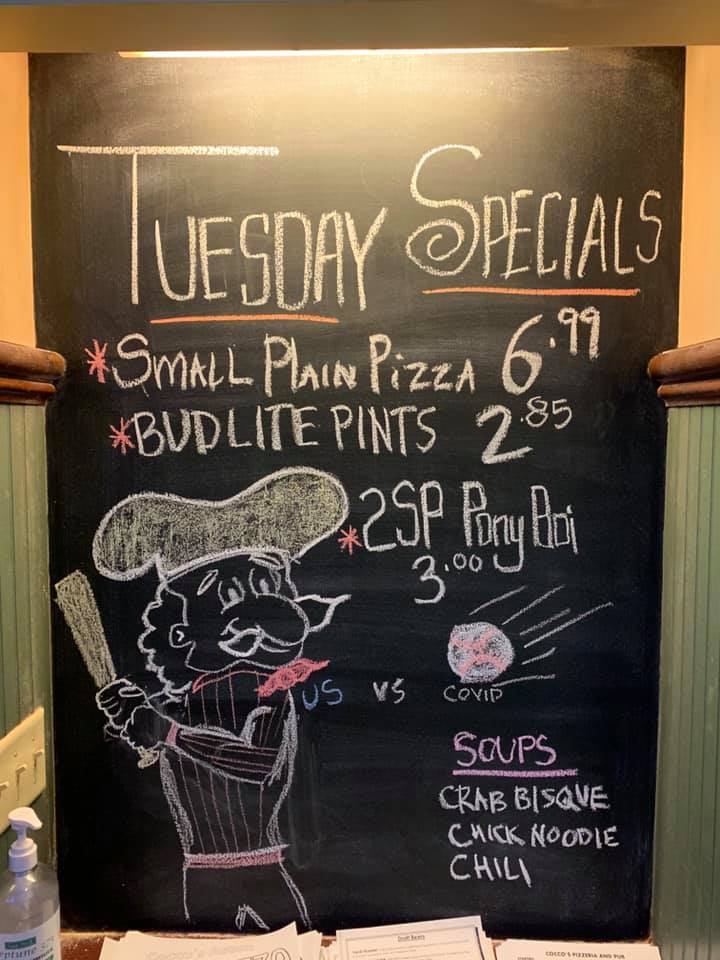 TUESDAY SPECIALS
*SMALL PLAIN PIZZA 6.99
*BUD LITE PINTS 2.85
*2SP Pony Boi
3.00
US VS COVID
SOUPS
CRAB BISQUE
CHICK NOODLE
CHILI
Draft Beers
COCCO'S PIZZERIA AND PUB